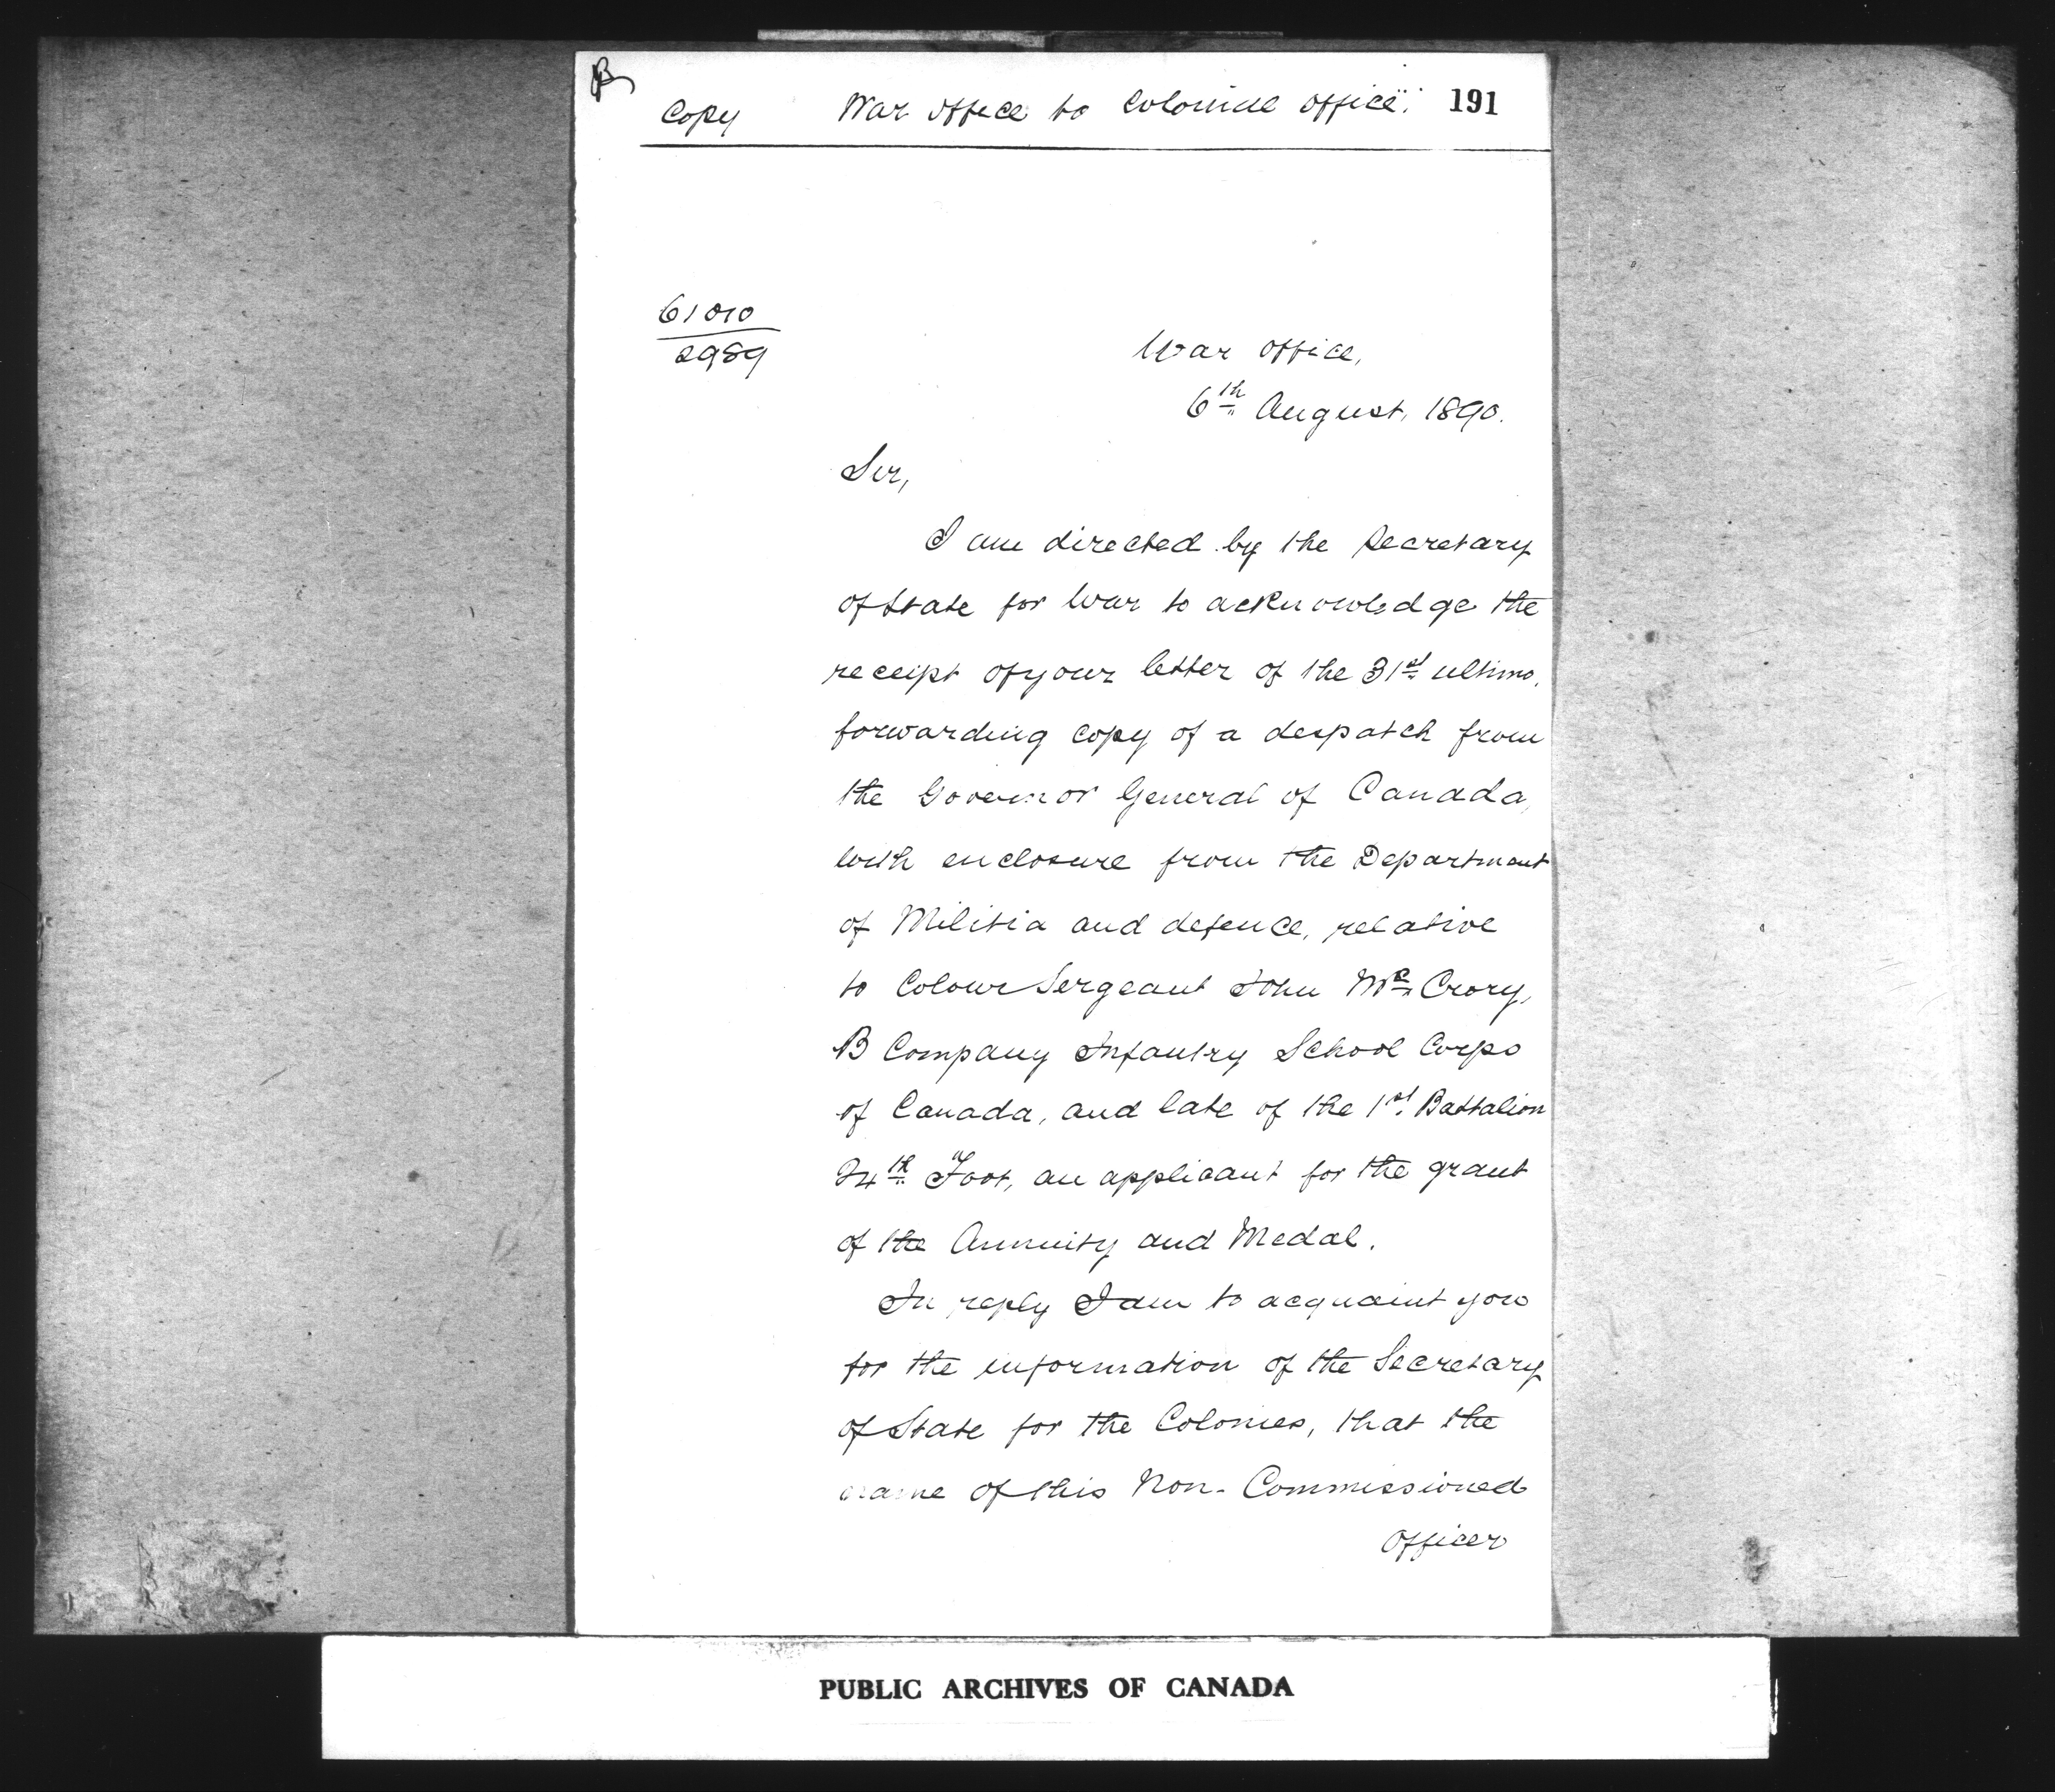 B
Copy War Office to Colonial Office. 191
61010
2989
War Office,
6th August, 1890.
Sir,
I am directed by the Secretary
of State for War to acknowledge the
receipt of your letter of the 31st ultimo,
forwarding copy of a despatch from
the Governor General of Canada,
with enclosure from the Department
of Militia and defence, relative
to Colour Sergeant John Mc Crory,
B Company Infantry School Corps
of Canada, and late of the 1st Battalion
24th Foot, an applicant for the grant
of the Annuity and Medal.
In reply I am to acquaint you
for the information of the Secretary
of State for the Colonies, that the
name of this Non-Commissioned
Officer
PUBLIC ARCHIVES OF CANADA